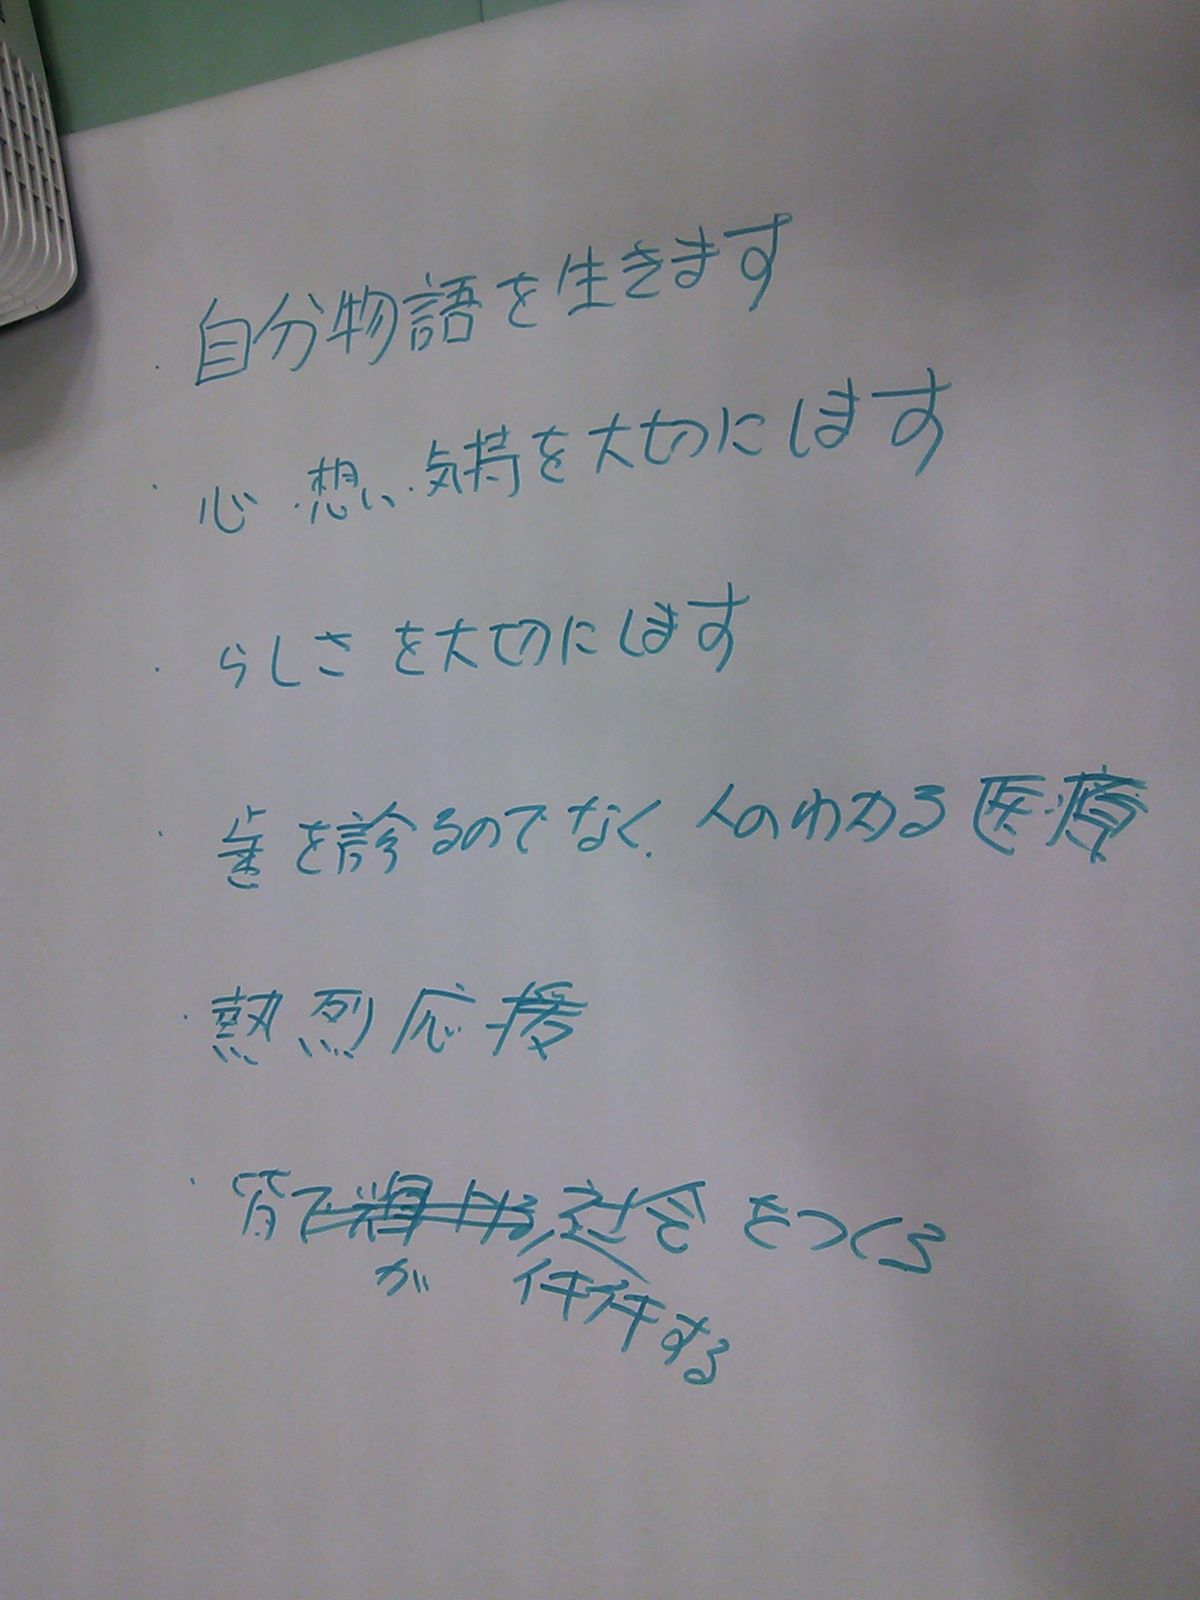 ・自分物語を生きます
・心・想い・気持を大切にします
・らしさを大切にします
・歯を診るのでなく、人のわかる医療
・熱烈応援
・皆で輝ける社会をつくる
が イキイキする